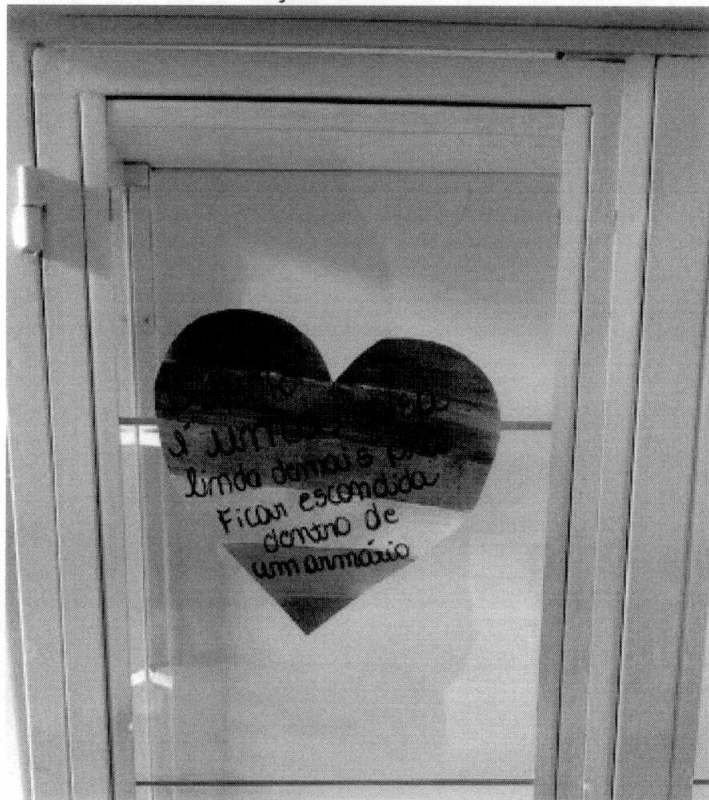 é uma
linda demais pra
Ficar escondida
dentro de
um armário